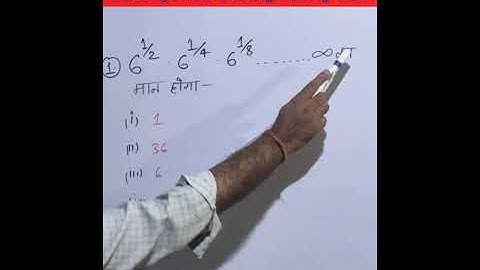 ① 6^{1/2} · 6^{1/4} · 6^{1/8} ........ ∞ का
मान होगा—
(i) 1
(ii) 36
(iii) 6